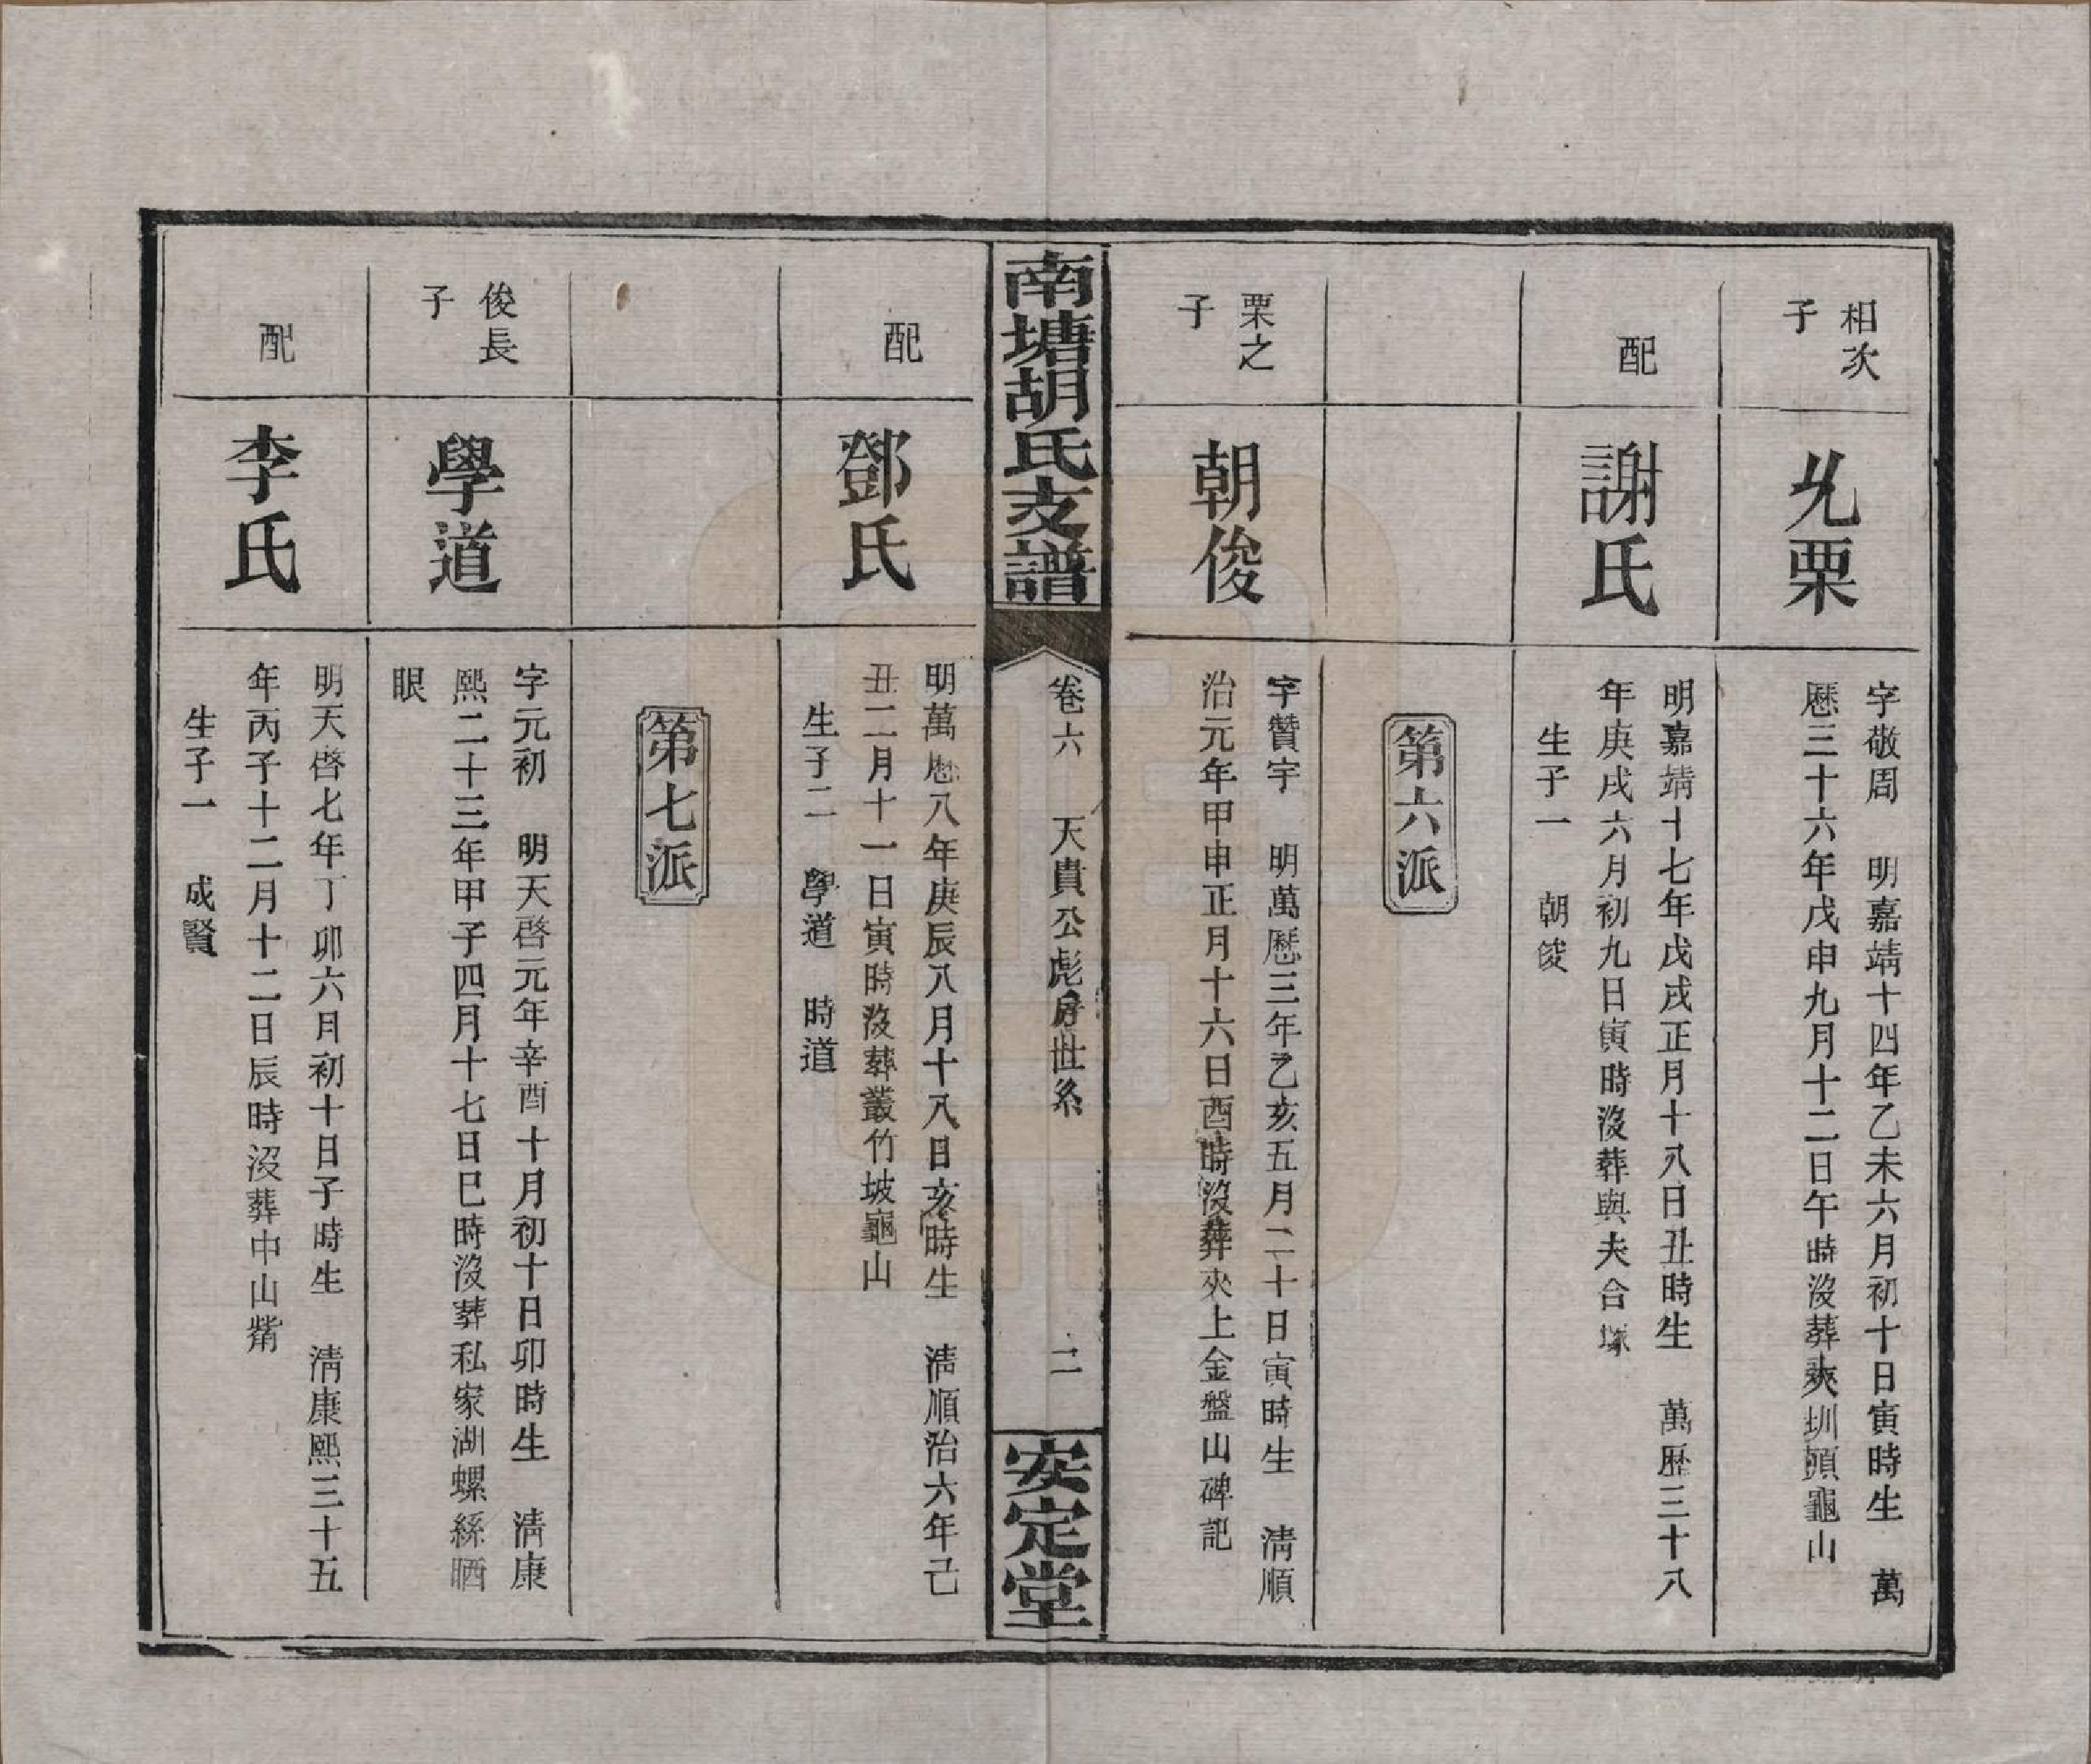 相次
子
允栗
字敬周　明嘉靖十四年乙未六月初十日寅時生　萬
歷三十六年戊申九月十二日午時沒葬夾圳頭龜山
配
謝氏
明嘉靖十七年戊戌正月十八日丑時生　萬歷三十八
年庚戌六月初九日寅時沒葬與夫合塚
生子一　朝俊
第六派
栗之
子
朝俊
字贊宇　明萬歷三年乙亥五月二十日寅時生　清順
治元年甲申正月十六日酉時沒葬夾上金盤山碑記
南塘胡氏支譜
卷六　天貴公彪房世系
二
安定堂
配
鄧氏
明萬歷八年庚辰八月十八日亥時生　清順治六年己
丑二月十一日寅時沒葬叢竹坡龜山
生子二　學道　時道
第七派
俊長
子
學道
字元初　明天啓元年辛酉十月初十日卯時生　清康
熙二十三年甲子四月十七日巳時沒葬私家湖螺絲晒
眼
配
李氏
明天啓七年丁卯六月初十日子時生　清康熙三十五
年丙子十二月十二日辰時沒葬中山觜
生子一　成賢